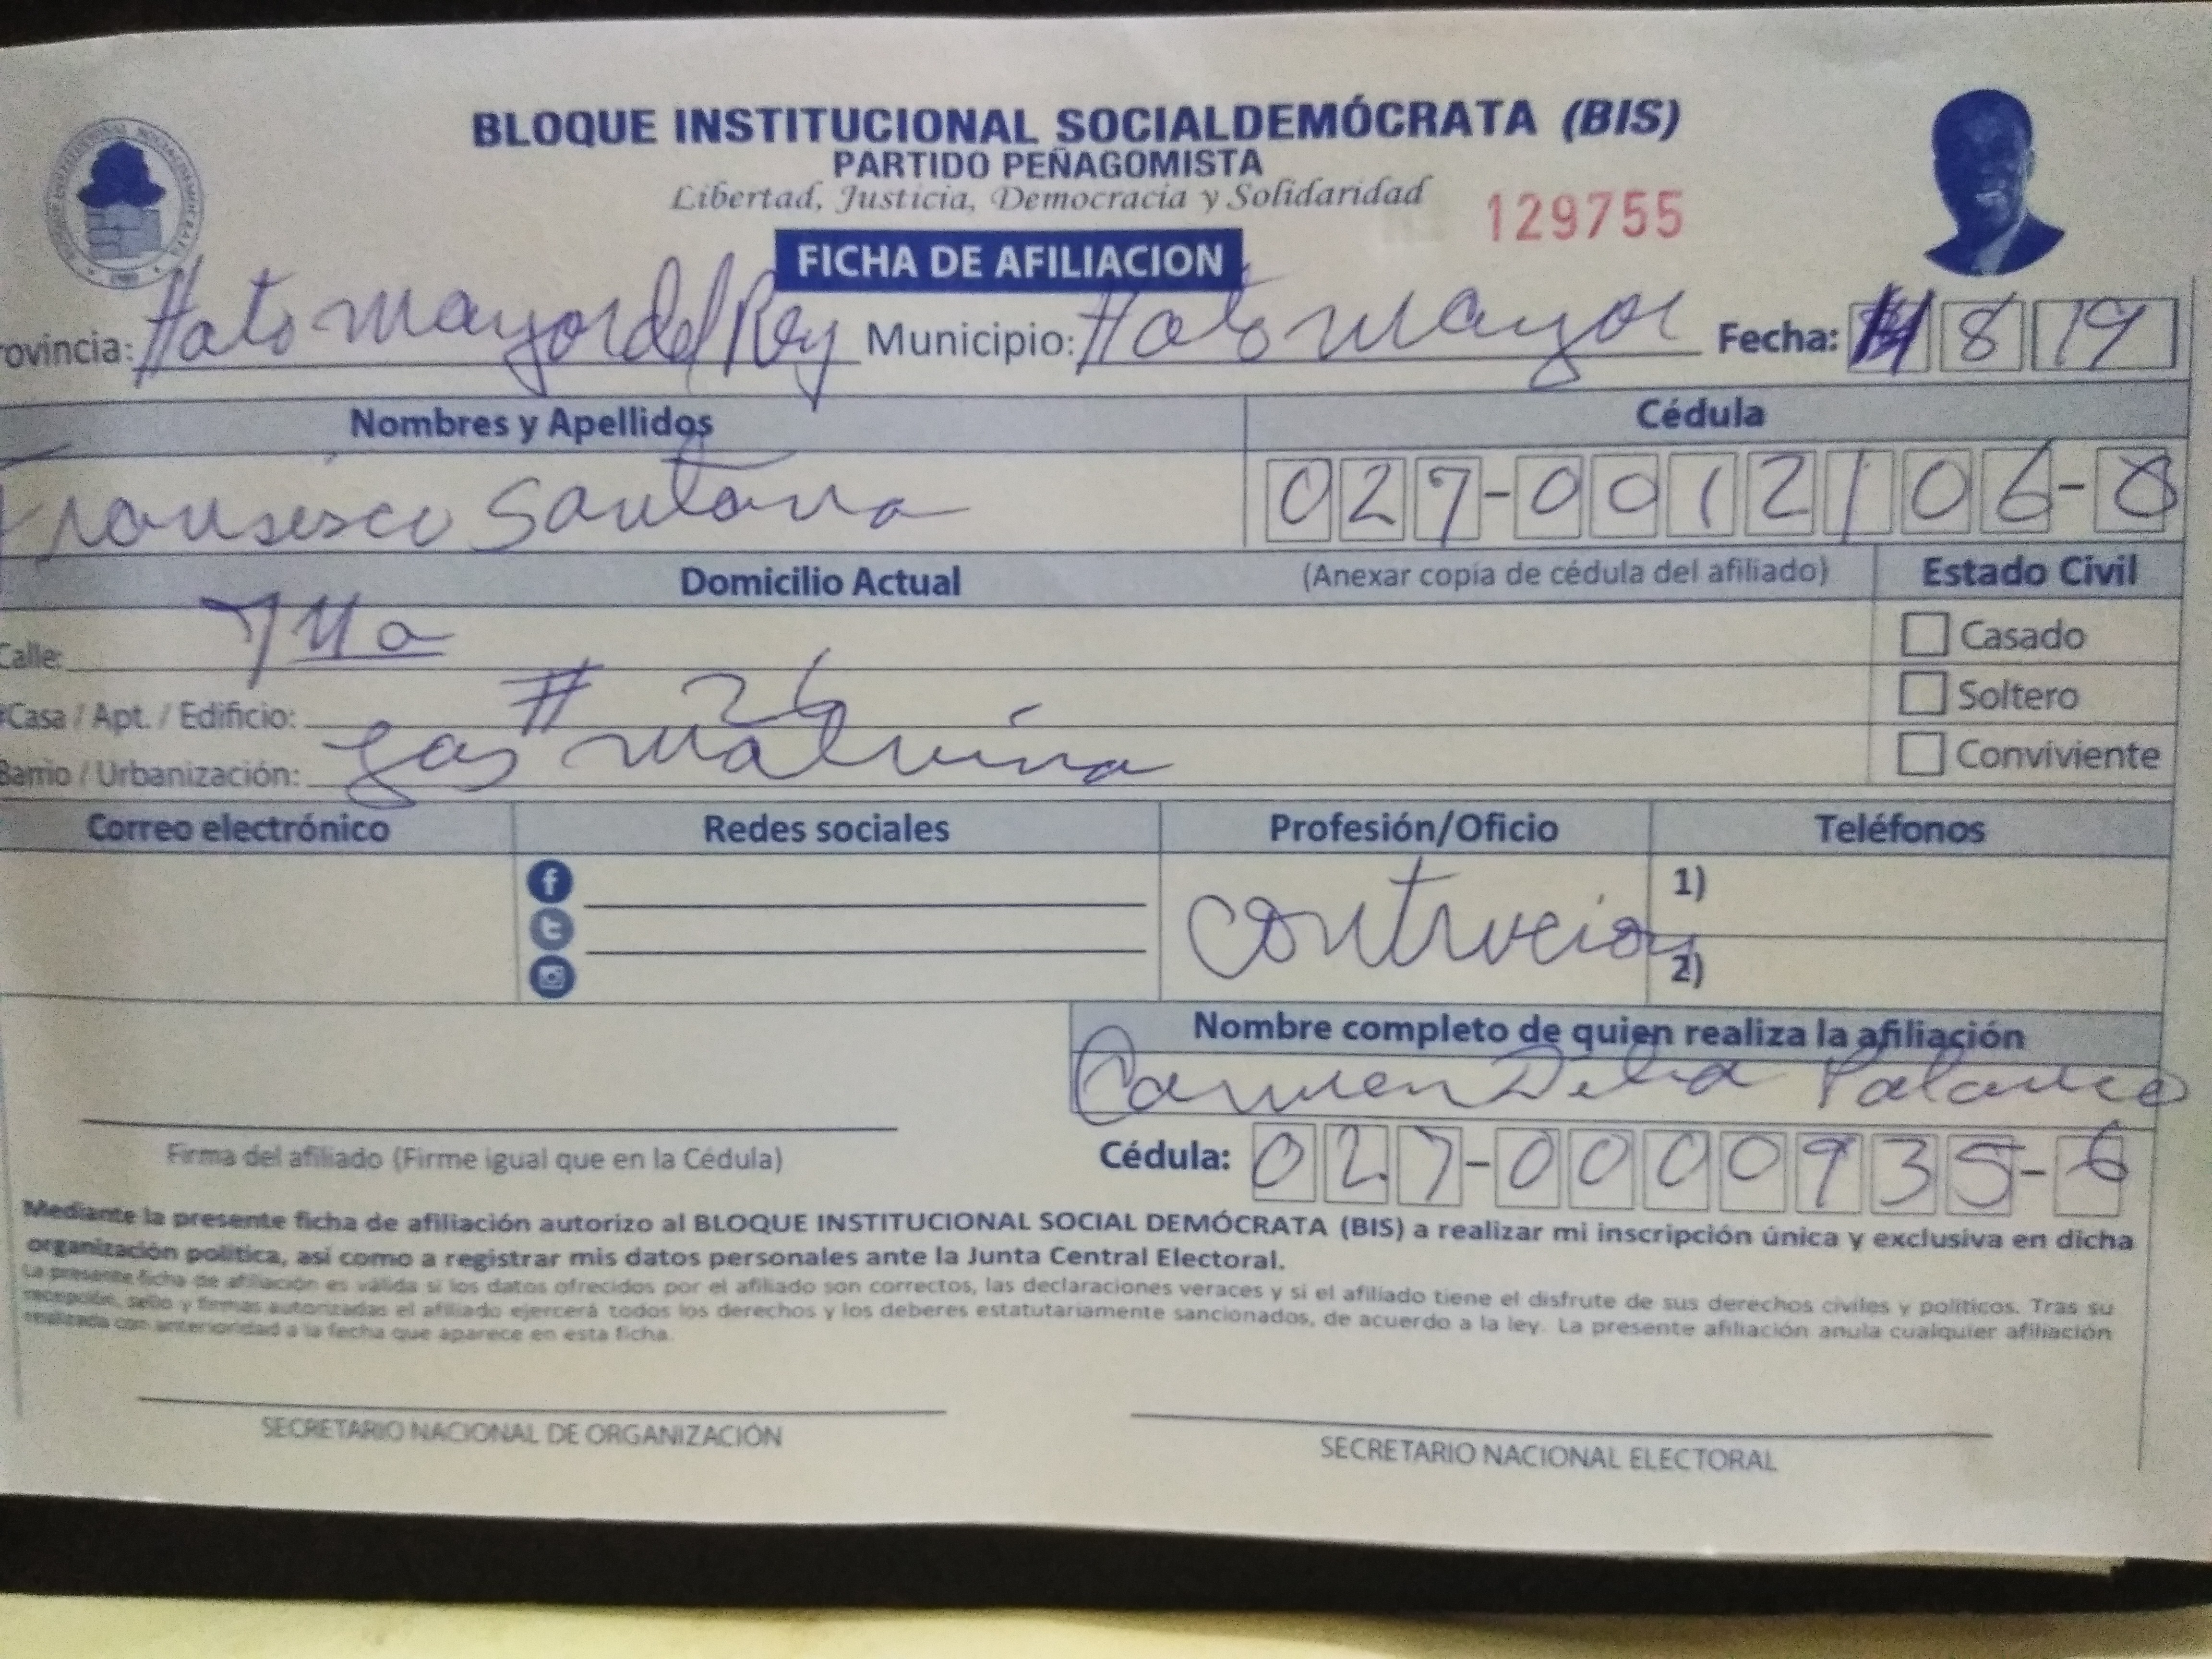 BLOQUE INSTITUCIONAL SOCIALDEMÓCRATA (BIS)
PARTIDO PEÑAGOMISTA
Libertad, Justicia, Democracia y Solidaridad
129755
FICHA DE AFILIACION
rovincia: Hato mayor del Rey Municipio: Hato mayor Fecha: 8 19
Nombres y Apellidos Cédula
Fransisco Santana 027-0012106-8
Domicilio Actual (Anexar copia de cédula del afiliado) Estado Civil
Calle: 7ma Casado
#Casa / Apt. / Edificio: # 26 Soltero
Barrio / Urbanización: Las malvina Conviviente
Correo electrónico Redes sociales Profesión/Oficio Teléfonos
contrucion 1)
2)
Nombre completo de quien realiza la afiliación
Carmen Delia Polanco
Firma del afiliado (Firme igual que en la Cédula) Cédula: 027-0000935-6
Mediante la presente ficha de afiliación autorizo al BLOQUE INSTITUCIONAL SOCIAL DEMÓCRATA (BIS) a realizar mi inscripción única y exclusiva en dicha
organización política, así como a registrar mis datos personales ante la Junta Central Electoral.
La presente ficha de afiliación es válida si los datos ofrecidos por el afiliado son correctos, las declaraciones veraces y si el afiliado tiene el disfrute de sus derechos civiles y políticos. Tras su
recepción, sello y firmas autorizadas el afiliado ejercerá todos los derechos y los deberes estatutariamente sancionados, de acuerdo a la ley. La presente afiliación anula cualquier afiliación
realizada con anterioridad a la fecha que aparece en esta ficha.
SECRETARIO NACIONAL DE ORGANIZACIÓN SECRETARIO NACIONAL ELECTORAL